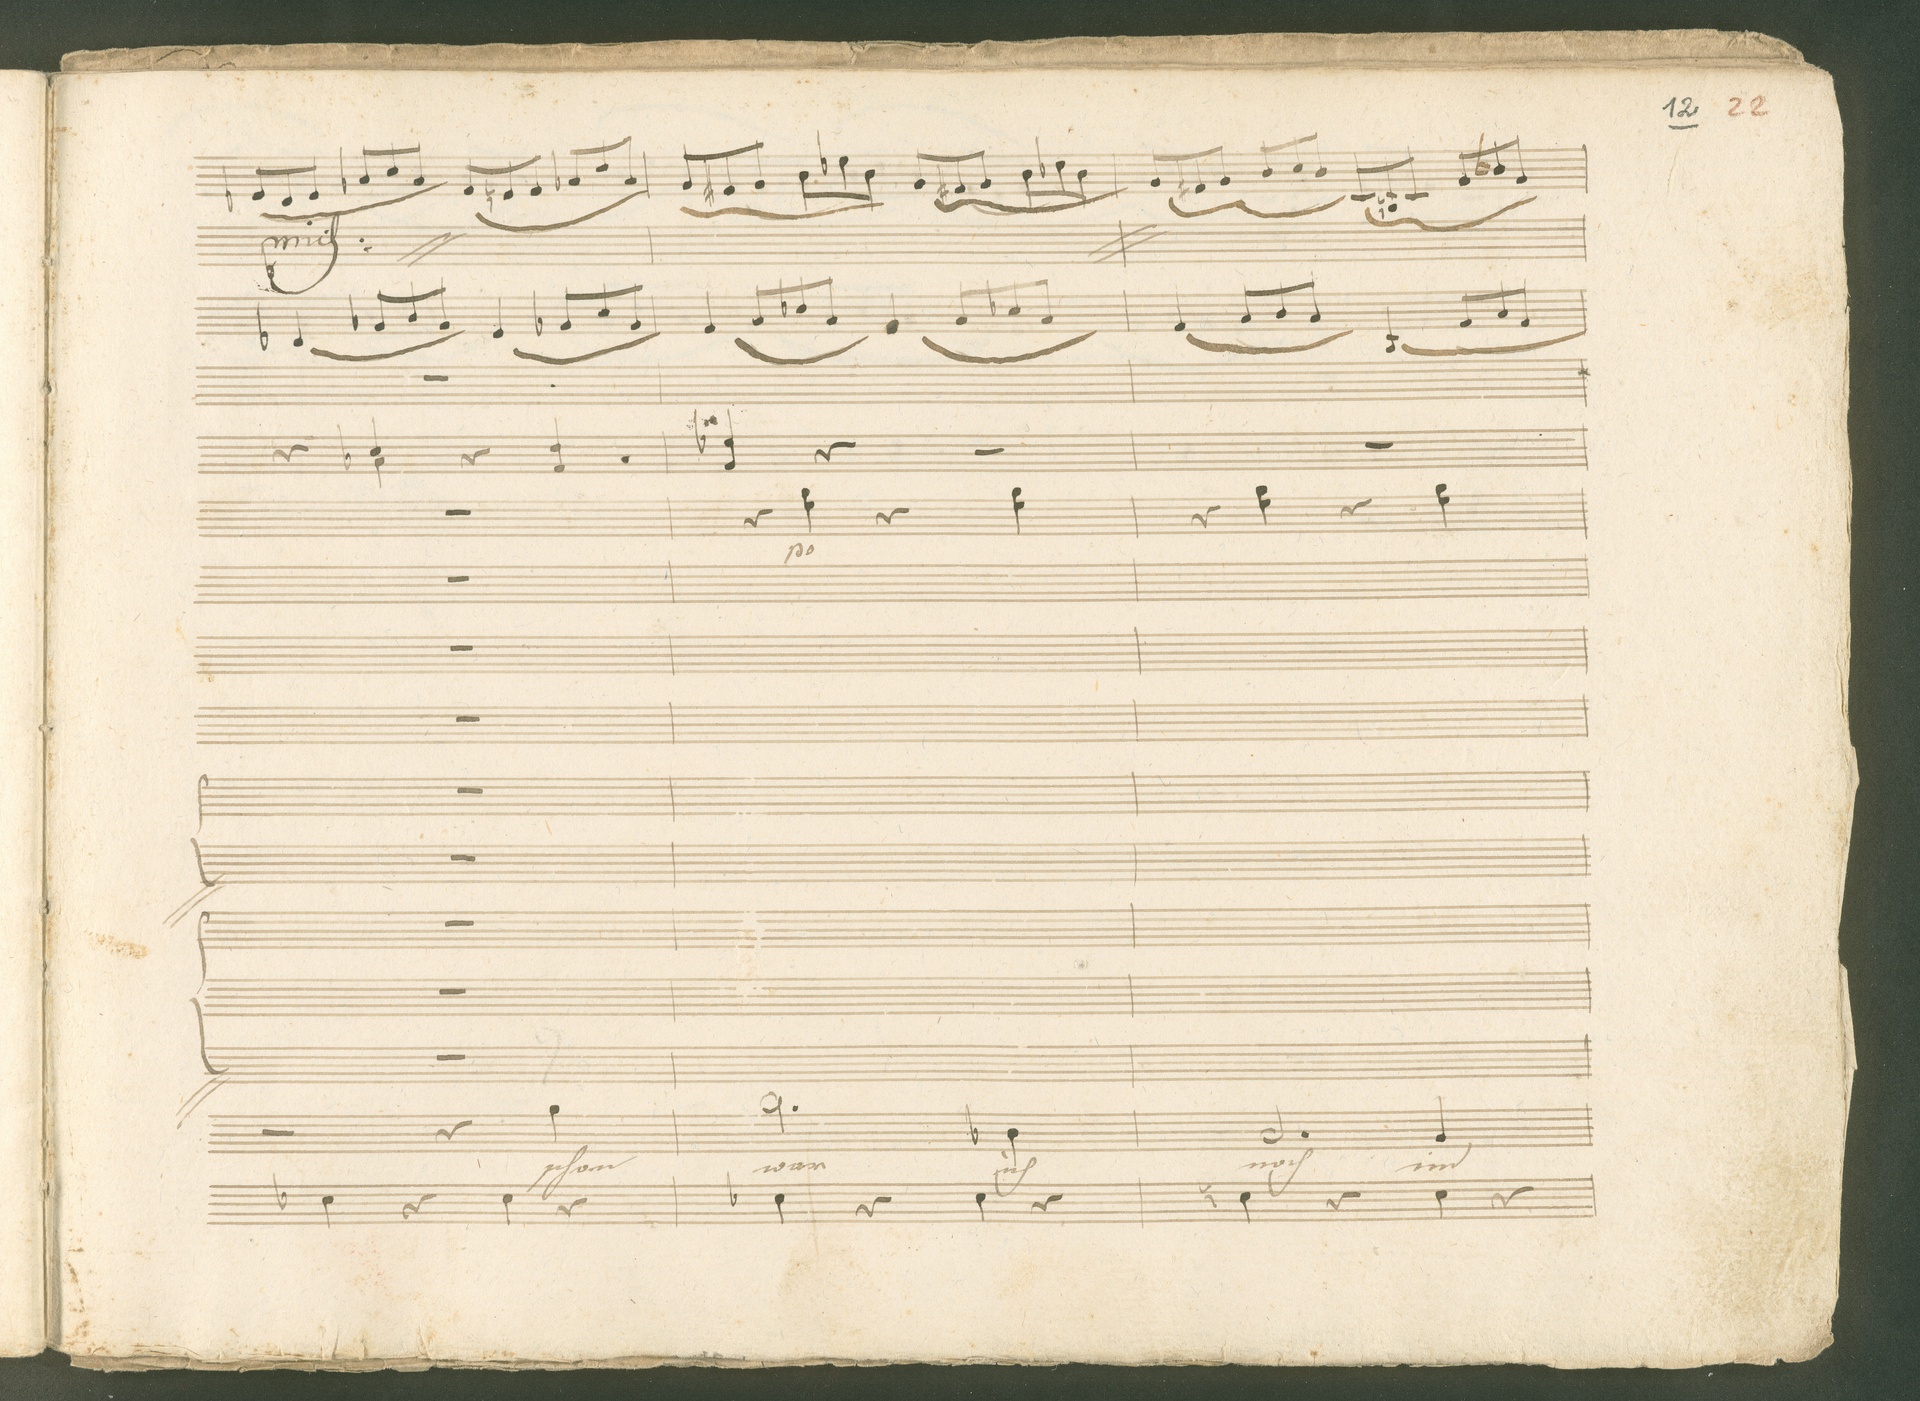 12 22
unis:
po
schon war ich noch im